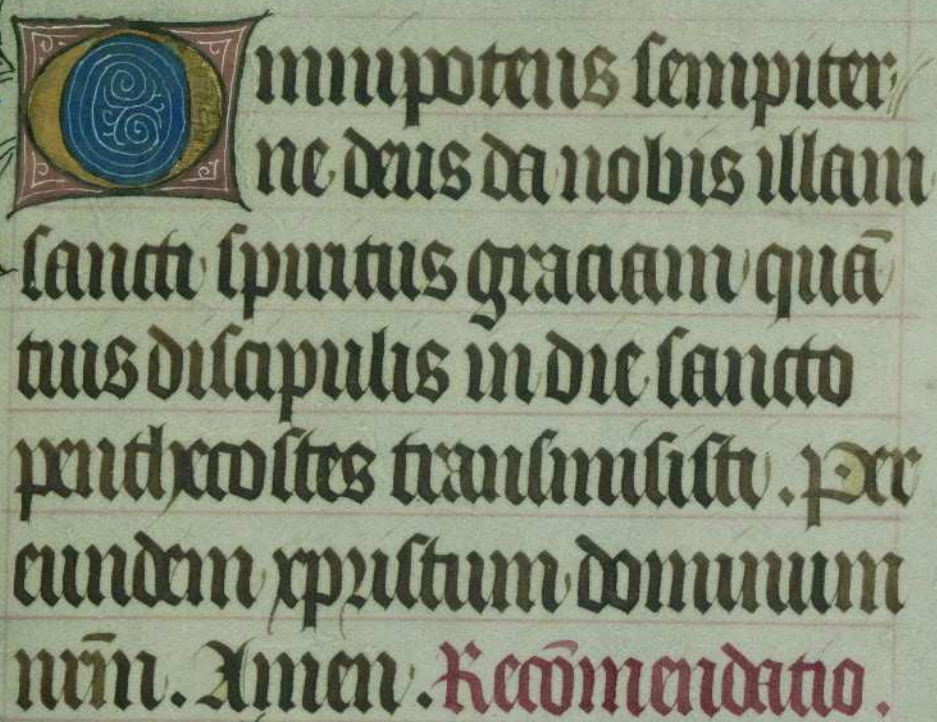 Omnipotens sempiter
ne deus da nobis illam
sancti spiritus graciam quā
tuis discipulis in die sancto
penthecostes transmisisti. Per
eundem xpristum dominum
nr̄m. Amen. Recōmendatio.